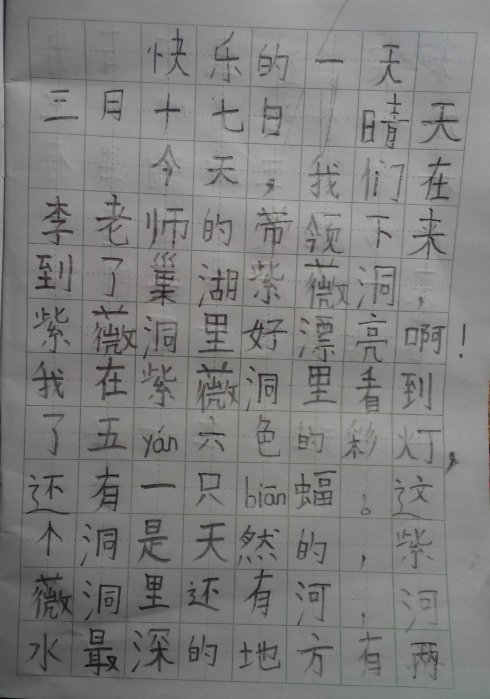 快乐的一天
三月十七日 晴天
今天,我们在
李老师的带领下来
到了巢湖紫薇洞,
紫薇洞里好漂亮啊!
我在紫薇洞里看到
了五yán六色的彩灯,
还有一只biān蝠。这
个洞是天然的,紫
薇洞里还有河,河
水最深的地方有两